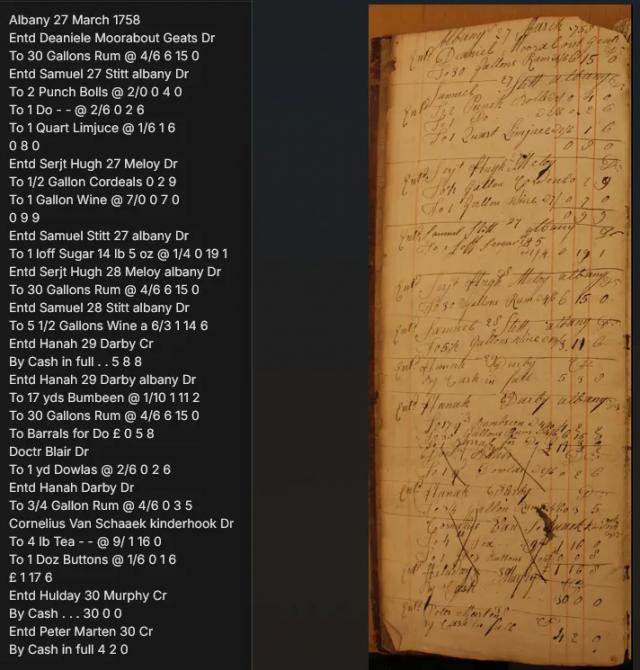 Albany 27 March 1758
Entd Deaniele Moorabout Geats Dr
To 30 Gallons Rum @ 4/6 6 15 0
Entd Samuel 27 Stitt albany Dr
To 2 Punch Bolls @ 2/0 0 4 0
To 1 Do - - @ 2/6 0 2 6
To 1 Quart Limjuce @ 1/6 1 6
0 8 0
Entd Serjt Hugh 27 Meloy Dr
To 1/2 Gallon Cordeals 0 2 9
To 1 Gallon Wine @ 7/0 0 7 0
0 9 9
Entd Samuel Stitt 27 albany Dr
To 1 loff Sugar 14 lb 5 oz @ 1/4 0 19 1
Entd Serjt Hugh 28 Meloy albany Dr
To 30 Gallons Rum @ 4/6 6 15 0
Entd Samuel 28 Stitt albany Dr
To 5 1/2 Gallons Wine a 6/3 1 14 6
Entd Hanah 29 Darby Cr
By Cash in full . . 5 8 8
Entd Hanah 29 Darby albany Dr
To 17 yds Bumbeen @ 1/10 1 11 2
To 30 Gallons Rum @ 4/6 6 15 0
To Barrals for Do £ 0 5 8
Doctr Blair Dr
To 1 yd Dowlas @ 2/6 0 2 6
Entd Hanah Darby Dr
To 3/4 Gallon Rum @ 4/6 0 3 5
Cornelius Van Schaaek kinderhook Dr
To 4 lb Tea - - @ 9/ 1 16 0
To 1 Doz Buttons @ 1/6 0 1 6
£ 1 17 6
Entd Hulday 30 Murphy Cr
By Cash . . . 30 0 0
Entd Peter Marten 30 Cr
By Cash in full 4 2 0
Albany 27 March 1758
Entd Deaniel Moor
To 30 Gallons Rum 6 15 0
Entd Samuel 27 Stitt albany
To 2 Punch Bolls 0 4 0
To 1 Do 2 6
To 1 Quart Limjuce 1 6
Entd Serjt Hugh Meloy
Gallon Cordeals 2 9
To 1 Gallon Wine 0 7 0
0 9 9
Entd Samuel Stitt 27 albany
To 1 Loff 0 19 1
Entd Serjt Hugh Meloy albany
To 30 Gallons Rum 6 15 0
Entd Samuel 28 Stitt albany
Gallons Wine
Entd Hanah Darby
By Cash in full 5 8 8
Entd Hanah Darby albany
Gallons Rum
Entd Hanah Darby
Gallon Rum
Cornelius Van
Tea 1 16 0
Buttons
Entd Hulday Murphy
By Cash 30 0 0
Entd Peter Marten
By Cash in full 4 2 0